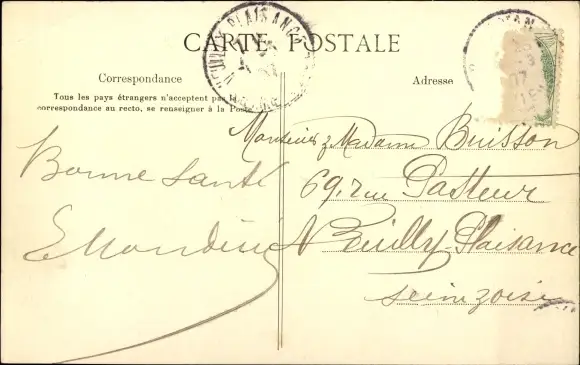 CARTE POSTALE
Correspondance
Tous les pays étrangers n'acceptent pas la
correspondance au recto, se renseigner à la Poste
Bonne santé
Adresse
Monsieur & Madame Buisson
69, rue Pasteur
Neuilly-Plaisance
Seine & Oise
PLAISANCE